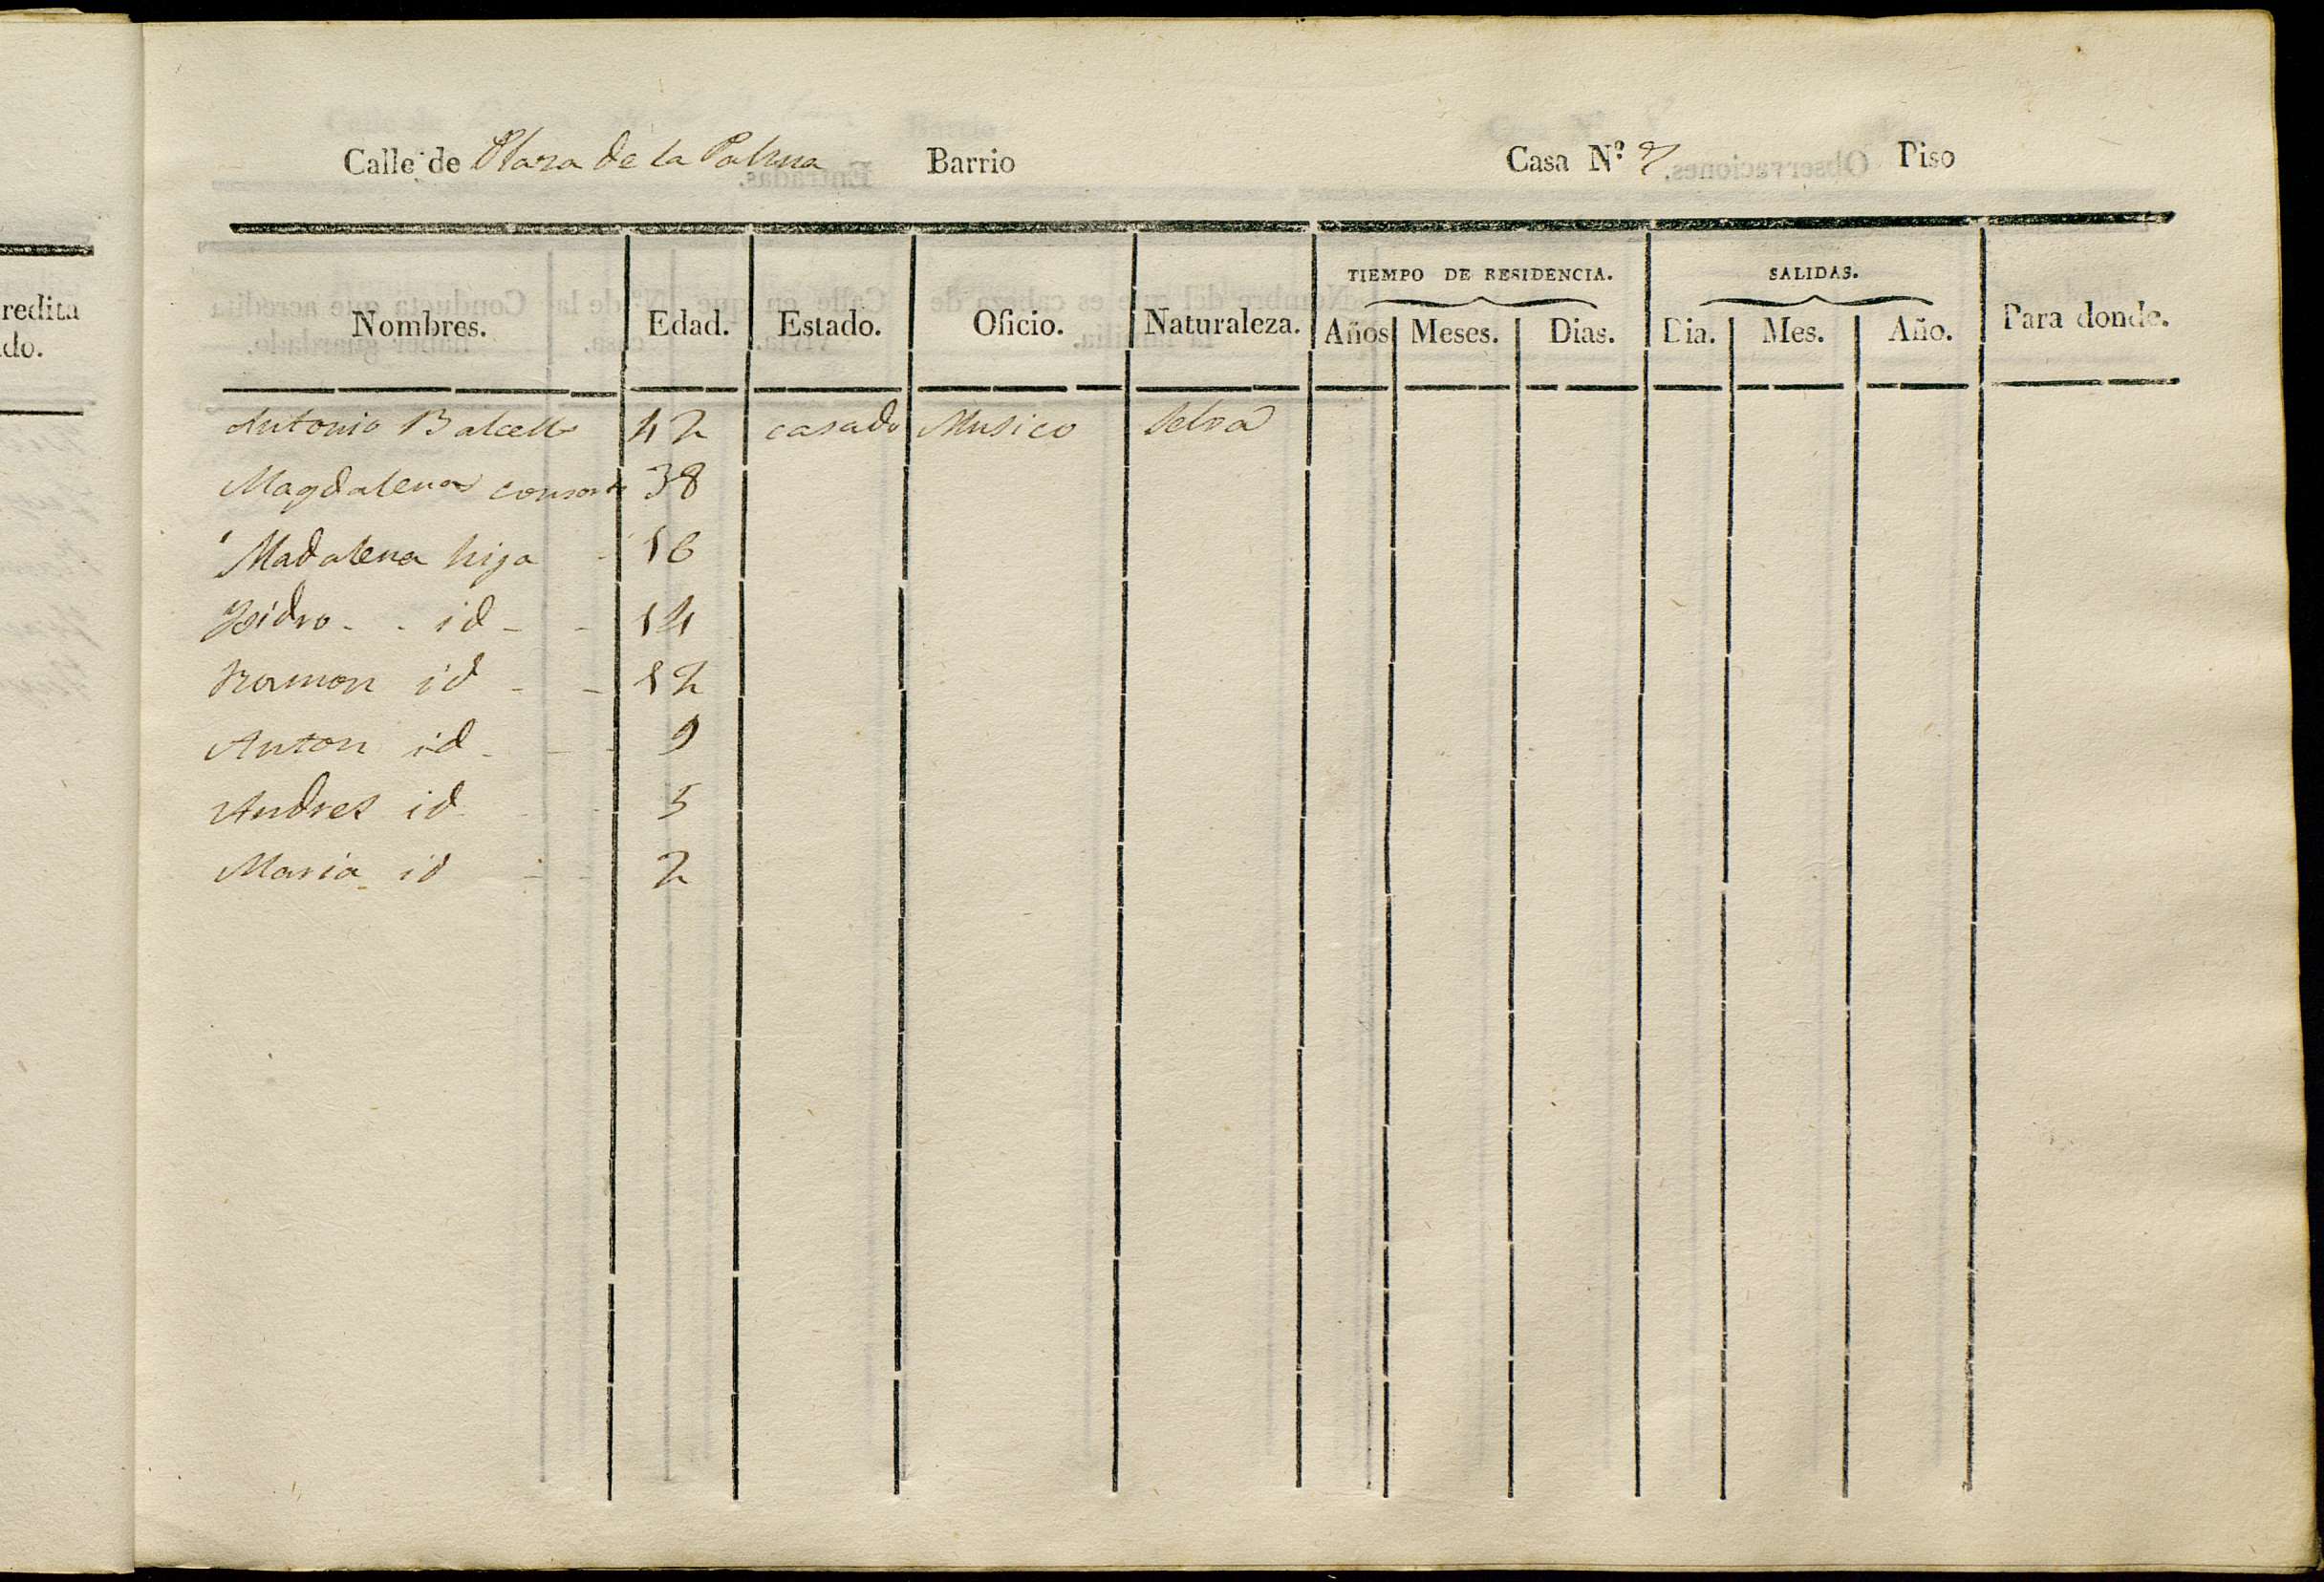 redita
do.
Calle de Plaza de la Palma Barrio Casa N.º 7 Piso
TIEMPO DE RESIDENCIA. SALIDAS.
Nombres. Edad. Estado. Oficio. Naturaleza. Años Meses. Dias. Dia. Mes. Año. Para donde.
Antonio Balcells 42 casado Musico Selva
Magdalena consorte 38
Madalena hija - 16
Isidro - - id - - 14
Ramon id - - 12
Anton id - - - 9
Andres id - - 5
Maria id - - 2